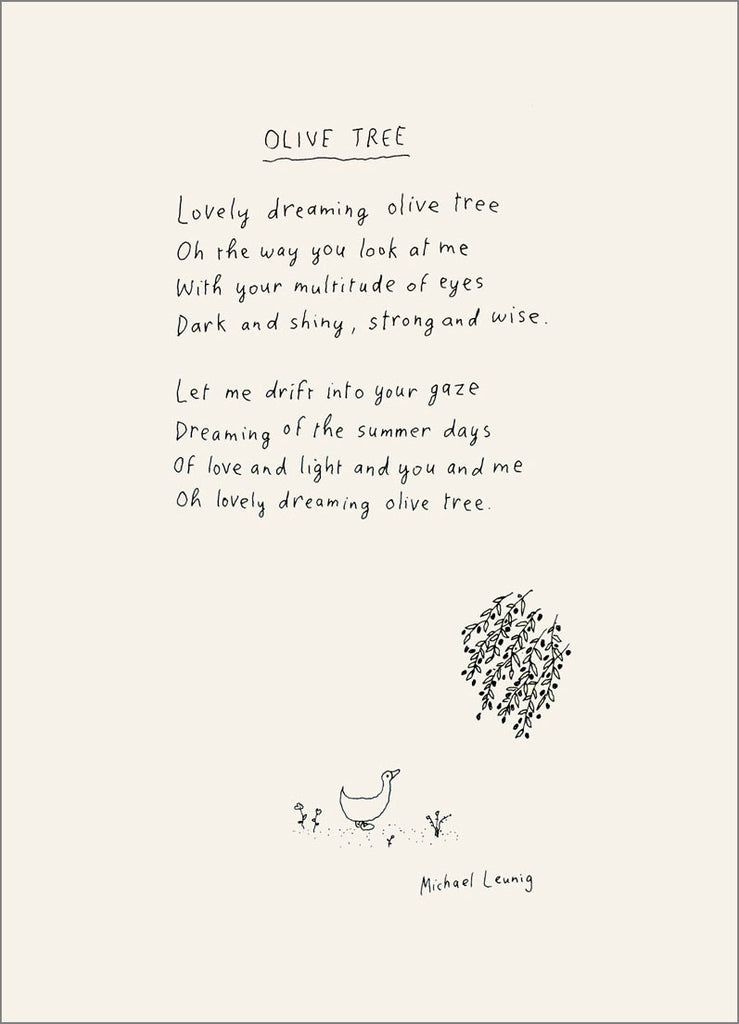 OLIVE TREE
Lovely dreaming olive tree
Oh the way you look at me
With your multitude of eyes
Dark and shiny, strong and wise.
Let me drift into your gaze
Dreaming of the summer days
Of love and light and you and me
Oh lovely dreaming olive tree.
Michael Leunig